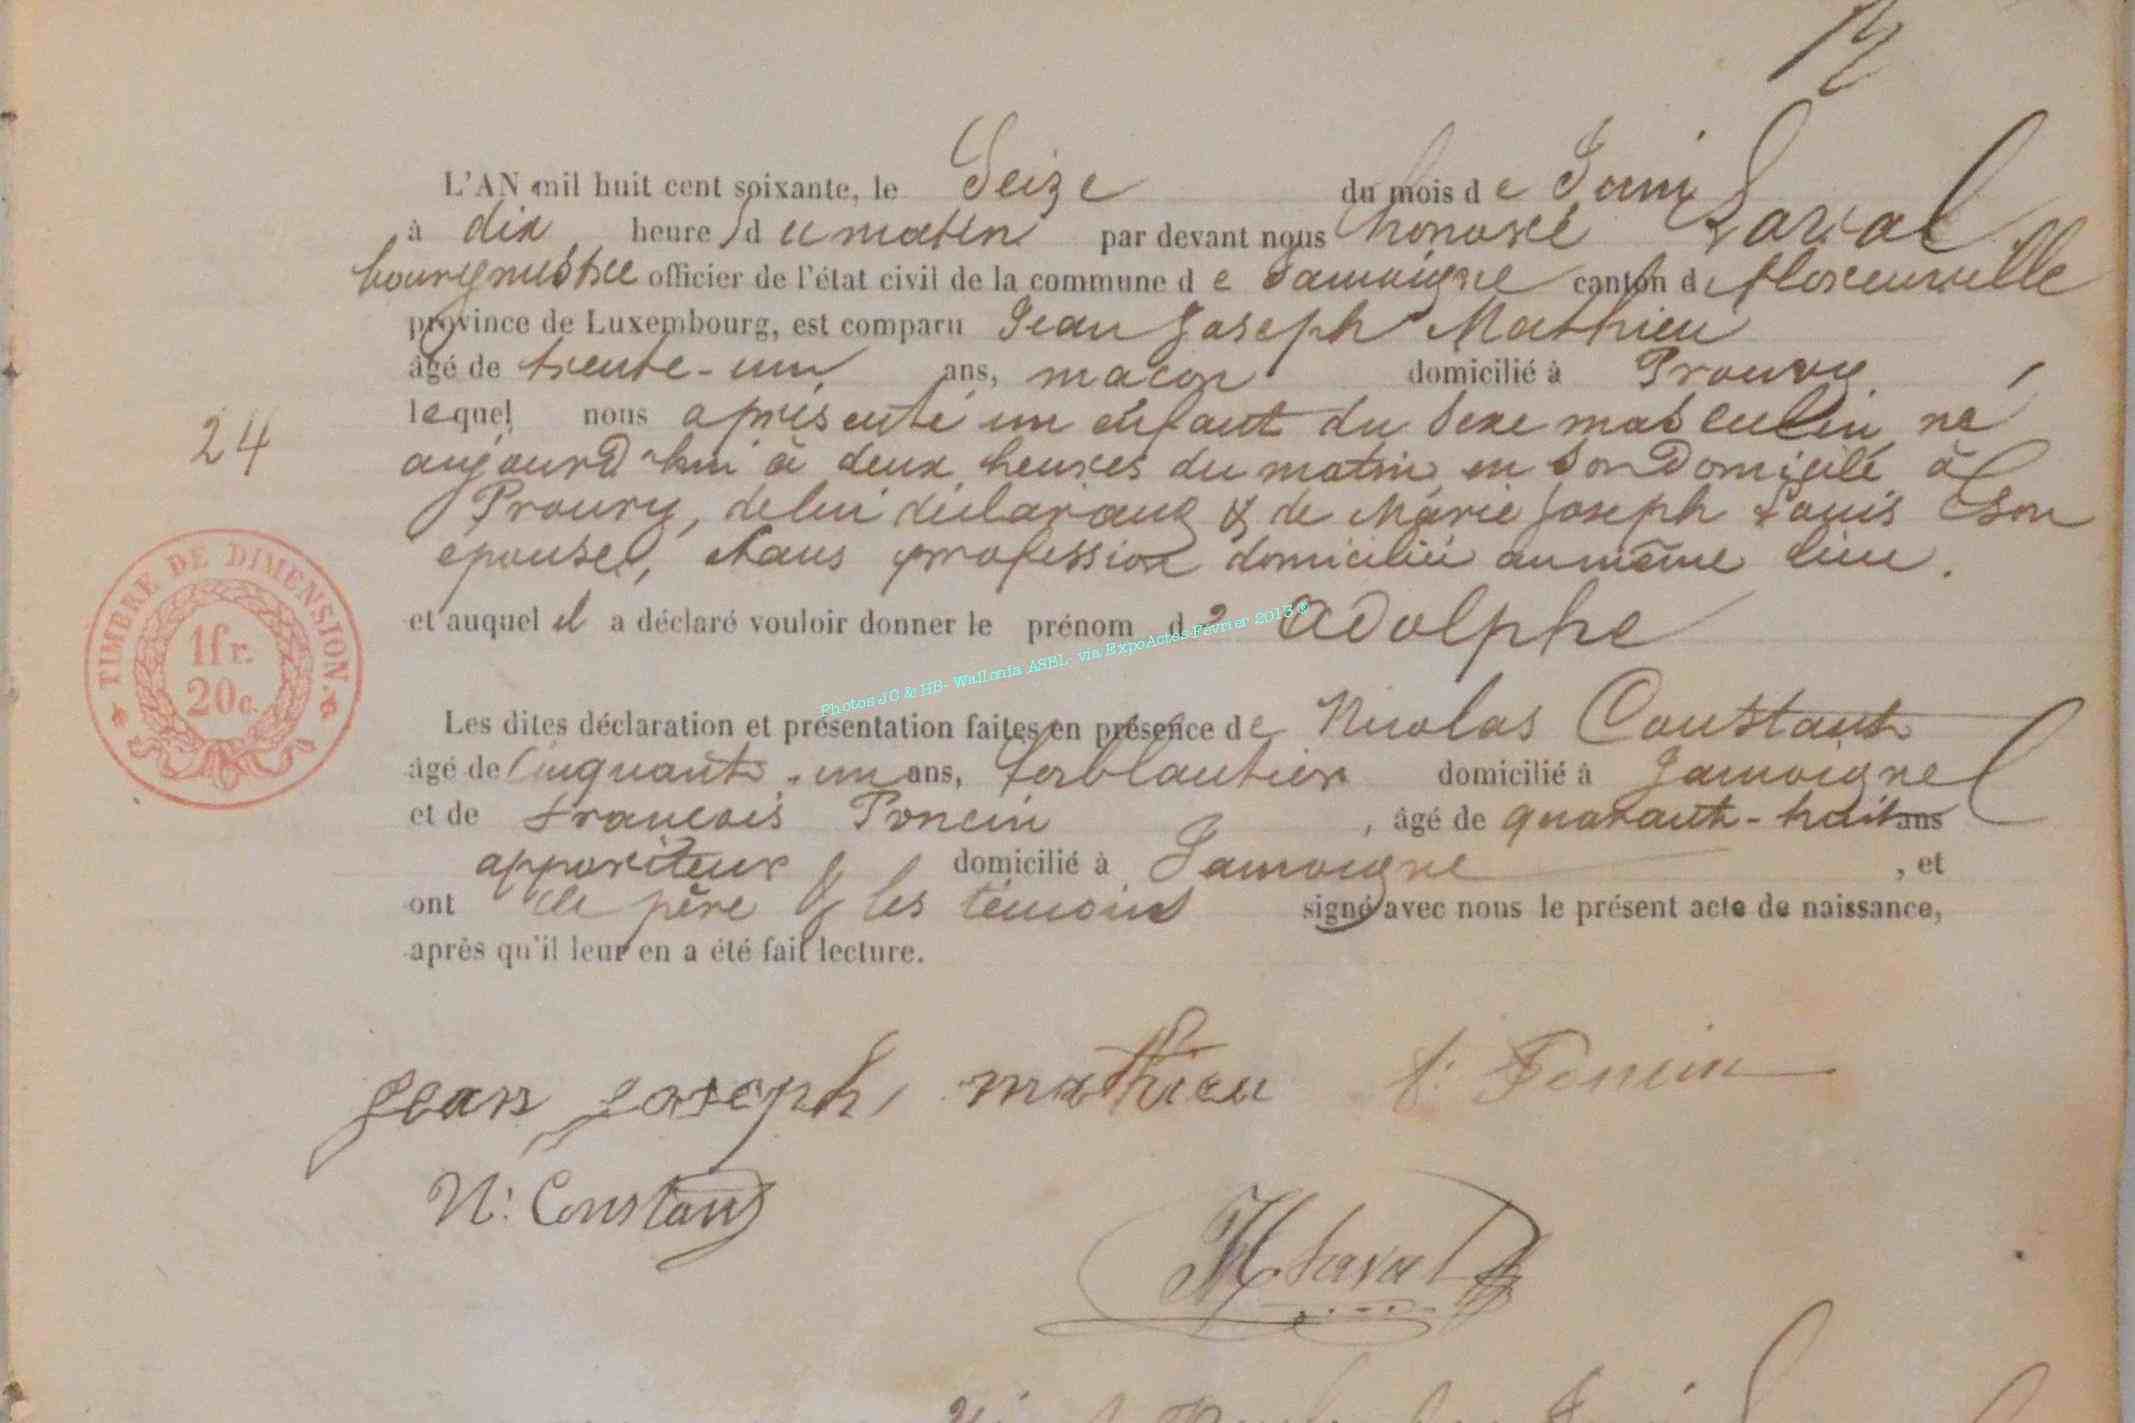 L'AN mil huit cent soixante, le Seize du mois de Juin
à dix heures du matin par devant nous honoré Laval
bourgmestre officier de l'état civil de la commune de Jamoigne canton de florenville
province de Luxembourg, est comparu Jean Joseph Mathieu
âgé de trente-un ans, maçon domicilié à Prouvy
lequel nous a présenté un enfant du sexe masculin né
24
aujourd'hui à deux heures du matin en son domicile à
Prouvy, de lui déclarant & de Marie Joseph Louis son
épouse, sans profession domiciliée au même lieu.
et auquel il a déclaré vouloir donner le prénom d adolphe
TIMBRE DE DIMENSION
1fr.
20c.
Photos JC & HB- Wallonia ASBL- via ExpoActes Février 2013 ®
Les dites déclaration et présentation faites en présence de Nicolas Constant
âgé de Cinquante-un ans, ferblantier domicilié à Jamoigne
et de francois Poncin , âgé de quarante-huit ans
appariteur domicilié à Jamoigne , et
ont le père & les témoins signé avec nous le présent acte de naissance,
après qu'il leur en a été fait lecture.
Jean joseph mathieu f: Poncin
N: Constant
H Laval